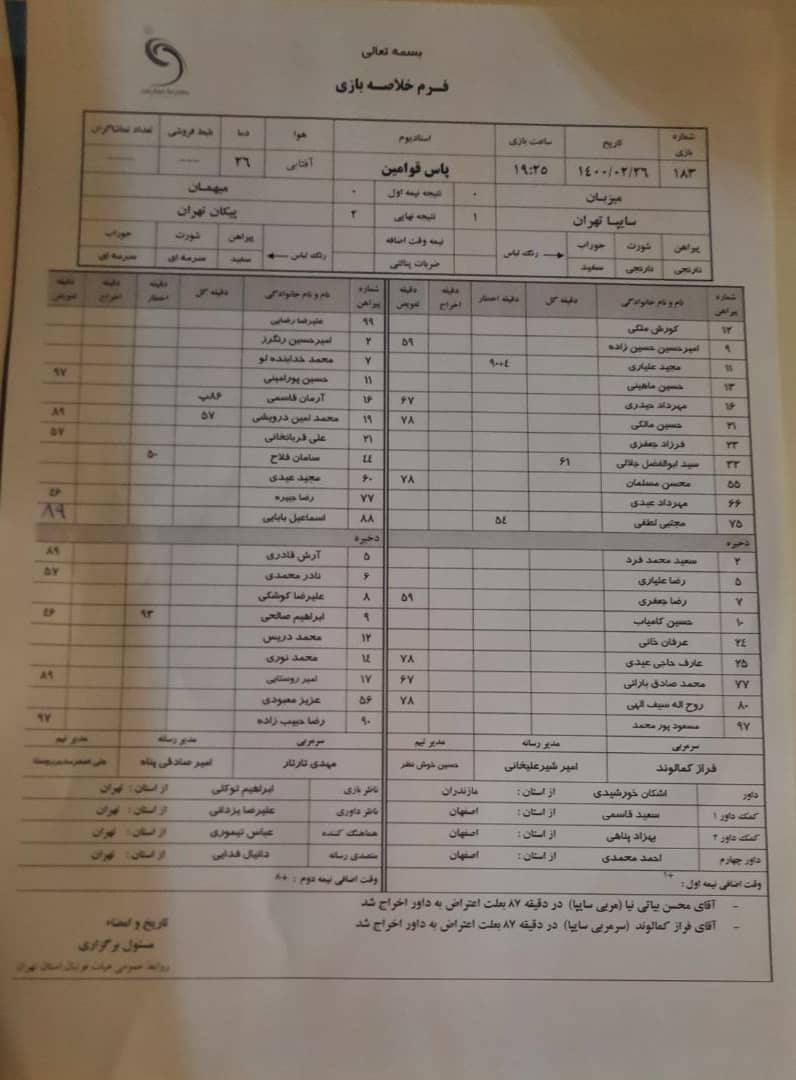 بسمه تعالی
فرم خلاصه بازی
شماره بازی تاریخ ساعت بازی استادیوم هوا دما بلیط فروشی تعداد تماشاگران
۱۸۳ ۱۴۰۰/۰۲/۲۶ ۱۹:۲۵ پاس قوامین آفتابی ۲۶ ---- ----
میزبان ۰ نتیجه نیمه اول ۰ میهمان
سایپا تهران ۱ نتیجه نهایی ۲ پیکان تهران
پیراهن شورت جوراب رنگ لباس نیمه وقت اضافه رنگ لباس پیراهن شورت جوراب
نارنجی نارنجی سفید ضربات پنالتی سفید سرمه ای سرمه ای
شماره پیراهن نام و نام خانوادگی دقیقه گل دقیقه اخطار دقیقه اخراج دقیقه تعویض شماره پیراهن نام و نام خانوادگی دقیقه گل دقیقه اخطار دقیقه اخراج دقیقه تعویض
۱۲ کورش ملکی ۹۹ علیرضا رضایی
۹ امیرحسین حسین زاده ۵۹ ۲ امیرحسین رنگرز
۱۱ مجید علیاری ۹۰+٤ ۷ محمد خدابنده لو
۱۳ حسین ماهینی ۱۱ حسین پورامینی ۹۷
۱۶ مهرداد حیدری ۶۷ ۱۶ آرمان قاسمی ۸۶پ
۲۱ حسین مالکی ۷۸ ۱۹ محمد امین درویشی ۵۷ ۸۹
۲۳ فرزاد جعفری ۲۱ علی قربانخانی ۵۷
۳۳ سید ابوالفضل جلالی ۶۱ ٤٤ سامان فلاح ۵۰
۵۵ محسن مسلمان ۷۸ ۶۰ مجید عیدی
۶۶ مهرداد عبدی ۷۷ رضا جبیره ٤۶
۷۵ مجتبی لطفی ۵٤ ۸۸ اسماعیل بابایی ۸۹
ذخیره ذخیره
۲ سعید محمد فرد ۵ آرش قادری ۸۹
۵ رضا علیاری ۶ نادر محمدی ۵۷
۷ رضا جعفری ۵۹ ۸ علیرضا کوشکی
۱۰ حسین کامیاب ۹ ابراهیم صالحی ۹۳ ٤۶
۲٤ عرفان خانی ۱۲ محمد دریس
۲۵ عارف حاجی عیدی ۷۸ ۱٤ محمد نوری
۷۷ محمد صادق بارانی ۶۷ ۱۷ امیر روستایی ۸۹
۸۰ روح اله سیف الهی ۷۸ ۵۶ عزیز معبودی
۹۷ مسعود پور محمد ۹۰ رضا حبیب زاده ۹۷
سرمربی مدیر رسانه مدیر تیم سرمربی مدیر رسانه مدیر تیم
فراز کمالوند امیر شیرعلیخانی حسین خوش نظر مهدی تارتار امیر صادقی پناه
داور اشکان خورشیدی از استان : مازندران ناظر بازی ابراهیم توکلی از استان : تهران
کمک داور ۱ سعید قاسمی از استان : اصفهان ناظر داوری علیرضا یزدانی از استان : تهران
کمک داور ۲ بهزاد پناهی از استان : اصفهان هماهنگ کننده عباس تیموری از استان : تهران
داور چهارم احمد محمدی از استان : اصفهان متصدی رسانه دانیال فدایی از استان : تهران
وقت اضافی نیمه اول : +۱ وقت اضافی نیمه دوم : +۸
- آقای محسن بیاتی نیا (مربی سایپا) در دقیقه ۸۷ بعلت اعتراض به داور اخراج شد
- آقای فراز کمالوند (سرمربی سایپا) در دقیقه ۸۷ بعلت اعتراض به داور اخراج شد
تاریخ و امضاء
مسئول برگزاری
روابط عمومی هیات فوتبال استان تهران